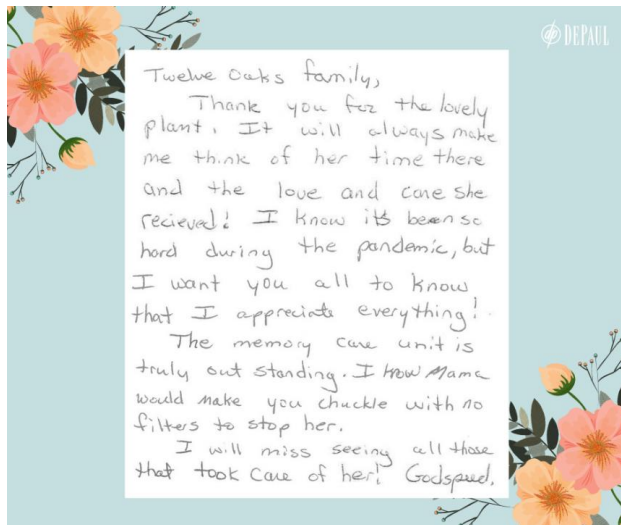 DEPAUL
Twelve Oaks family,
Thank you for the lovely
plant. It will always make
me think of her time there
and the love and care she
recieved! I know its been so
hard during the pandemic, but
I want you all to know
that I appreciate everything!
The memory care unit is
truly out standing. I know Mama
would make you chuckle with no
filters to stop her.
I will miss seeing all those
that took care of her! Godspeed.